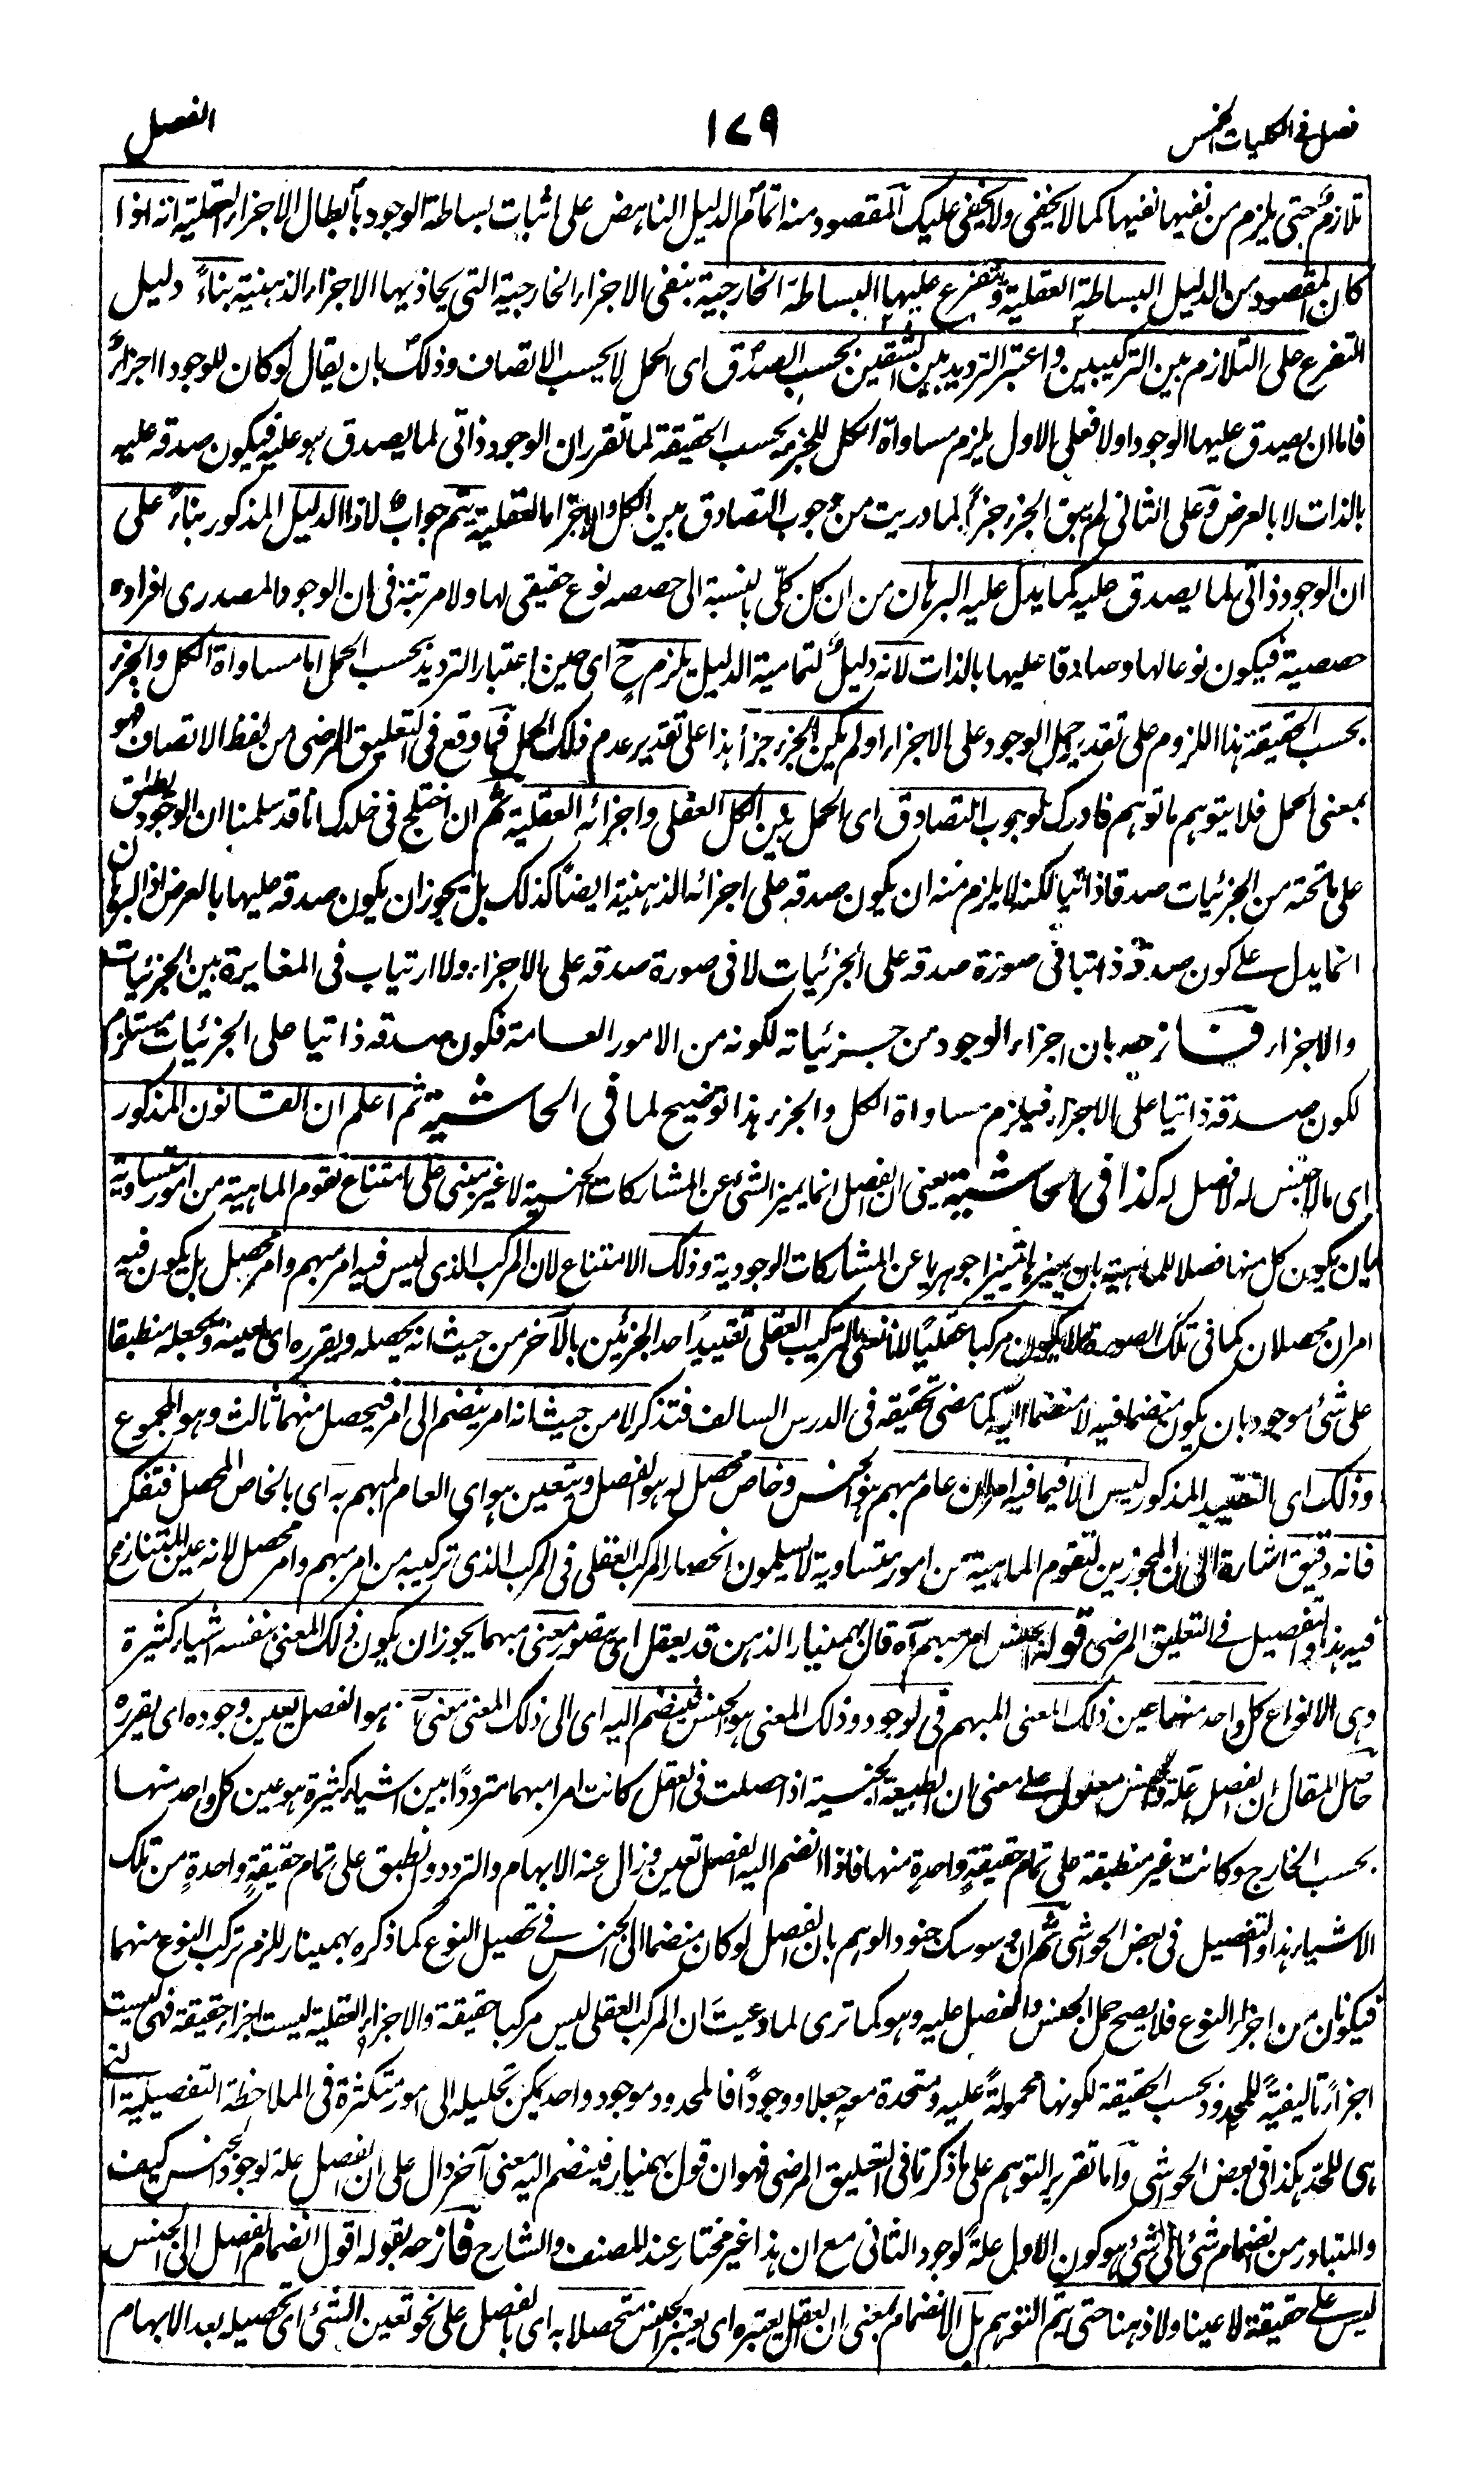 فصل فی الکلیات الخمس ۱۷۹ الفصل
تلازم حتی یلزم من نفیها نفیها کما لا یخفی ولا یخفی علیک المقصود منه اتمام الدلیل الناهض علی اثبات بساطة الوجود بأبطال الاجزاء العقلیة انه اذا
کان المقصود من الدلیل البساطة العقلیة ویتفرع علیها البساطة الخارجیة بنفی الاجزاء الخارجیة التی یحاذیها الاجزاء الذهنیة بناءً دلیل
التفرع علی التلازم بین الترکیبین واعتبر التردید بین الشقین بحسب الصدق ای الحمل لا بحسب الاتصاف وذلک بان یقال لو کان للوجود اجزاءٌ
فاما ان یصدق علیها الوجود اولا فعلی الاول یلزم مساواة الکل للجزء بحسب الحقیقة لما تقرر ان الوجود ذاتی لما یصدق هو علیه فیکون صدقه علیه
بالذات لا بالعرض وعلی الثانی لم یبق الجزء جزءاً لما دریت من وجوب التصادق بین الکل والاجزاء العقلیة یتم جواب لاذا الدلیل المذکور بناءً علی
ان الوجود ذاتی لما یصدق علیه کما یدل علیه البرهان من ان کل کلّی بالنسبة الی حصصه نوع حقیقی لها ولا مریة فی ان الوجود المصدری افراده
حصصیة فیکون نوعا لها وصادقا علیها بالذات لانه دلیل لتمامیة الدلیل یلزم ح ای حین اعتبار التردید بحسب الحمل اما مساواة الکل والجزء
بحسب الحقیقة هذا اللزوم علی تقدیر حمل الوجود علی الاجزاء او لم یکن الجزء جزأ هذا علی تقدیر عدم ذلک الحمل فما وقع فی التعلیق المرضی من لفظ الاتصاف فهو
بمعنی الحمل فلا یتوهم ما توهم فادرک لوجوب التصادق ای الحمل بین الکل العقلی واجزائه العقلیة ثم ان اختلج فی خلدک انا قد سلمنا ان الوجود یطلق
علی ما تحته من الجزئیات صدقا ذاتیا لکنه لا یلزم منه ان یکون صدقه علی اجزائه الذهنیة ایضاً کذلک بل یجوز ان یکون صدقه علیها بالعرض اذ البرهان
انما یدل علی کون صدقه ذاتیا فی صورة صدقه علی الجزئیات لا فی صورة صدقه علی الاجزاء ولا ارتیاب فی المغایرة بین الجزئیات
والاجزاء فازحه بان اجزاء الوجود من جزئیاته لکونه من الامور العامة فکون صدقه ذاتیا علی الجزئیات مستلزم
لکون صدقه ذاتیا علی الاجزاء فیلزم مساواة الکل والجزء هذا توضیح لما فی الحاشیة ثم اعلم ان القانون المذکور
ای ما لا جنس له لا فصل له کذا فی الحاشیة یعنی ان الفصل انما یمیز الشئ عن المشارکات الجنسیة لا غیر مبنی علی امتناع تقوم الماهیة من امور متساویة
بان یکون کل منها فصلا للماهیة بان یمیزها تمییزا جوهریا عن المشارکات الوجودیة وذلک الامتناع لان المرکب الذی لیس فیه امر مبهم وامر محصل بل یکون فیه
امران محصلان کما فی تلک الصورة لا یکون مرکبا عقلیاً لانا نعنی بالترکیب العقلی تقیید احد الجزئین بالآخر من حیث انه یحصله ویقرره ای یعینه ویجعله منطبقا
علی شئ موجود بان یکون منضما فیه لا منضما الیه کما مضی تحقیقه فی الدرس السالف فتذکر لا من حیث انه امر ینضم الی امر فیحصل منهما ثالث وهو المجموع
وذلک ای التقیید المذکور لیس الا فیما فیه امران عام مبهم هو الجنس وخاص محصل له هو الفصل ویتعین هو ای العام المبهم به ای بالخاص المحصل فتفکر
فانه دقیق اشارة الی ان المجوزین لتقوم الماهیة من امور متساویة لا یسلمون انحصار المرکب العقلی فی المرکب الذی ترکیبه من امر مبهم وامر محصل لانه عین المتنازع
فیه هذا والتفصیل فی التعلیق المرضی قوله الجنس امر مبهم آه قال بهمنیار الذهن قد یعقل ای یتصور معنی مبهما یجوز ان یکون ذلک المعنی بنفسه اشیاء کثیرة
وهی الانواع کل واحد منهما عین ذلک المعنی المبهم فی الوجود وذلک المعنی هو الجنس فینضم الیه ای الی ذلک المعنی معنی آخر هو الفصل یعین وجوده ای یقرره
حاصل المقال ان الفصل علة والجنس معلول علی معنی ان الطبیعة الجنسیة اذا حصلت فی العقل کانت امرا مبهما مترددًا بین اشیاء کثیرة هو عین کل واحد منها
بحسب الخارج وکانت غیر منطبقة علی تمام حقیقةٍ واحدةٍ منها فاذا انضم الیه الفصل تعین وزال عنه الابهام والتردد وانطبق علی تمام حقیقةٍ واحدةٍ من تلک
الاشیاء هذا والتفصیل فی بعض الحواشی ثم ان وسوسک جنود الوهم بان الفصل لو کان منضما الی الجنس فی تحصیل النوع کما ذکره بهمنیار للزم ترکب النوع منهما
فیکونان من اجزاء النوع فلا یصح حمل الجنس والفصل علیه وهو کما تری لما دعیت ان المرکب العقلی لیس مرکبا حقیقة والاجزاء العقلیة لیست اجزاء حقیقة فهی لیست
اجزاءً تالیفیةً للمحدود بحسب الحقیقة لکونها محمولةً علیه ومتحدة معه جعلا ووجوداً فالمحدود موجود واحد یمکن تحلیله الی امور متکثرة فی الملاحظة التفصیلیة التی
هی للحد هکذا فی بعض الحواشی وأما تقریر التوهم علی ما ذکرنا فی التعلیق المرضی فهو ان قول بهمنیار فینضم الیه معنی آخر دال علی ان الفصل علة لوجود الجنس کیف
والمتبادر من انضمام شئ الی شئ هو کون الاول علةً لوجود الثانی مع ان هذا غیر مختار عند المصنف والشارح فأزحه بقوله اقول انضمام الفصل الی الجنس
لیس علی حقیقة لا عینا ولا ذهنا حتی یتم التوهم بل الانضمام بمعنی ان العقل یعتبره ای یعتبر الجنس متحصلا به ای بالفصل علی نحو تعین الشئ ای تحصیله بعد الابهام